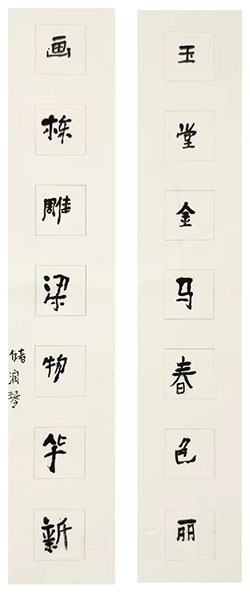 玉堂金马春色丽
画栋雕梁物华新
储润琴